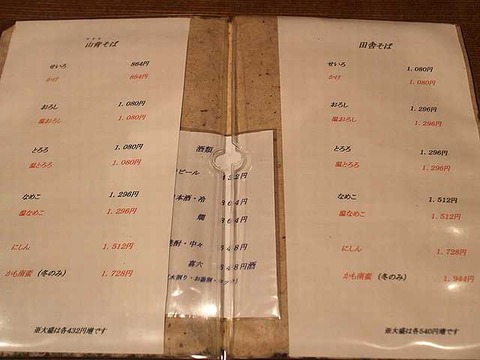 山背そば
せいろ 864円
かけ 864円
おろし 1.080円
温おろし 1.080円
とろろ 1.080円
温とろろ 1.080円
なめこ 1.296円
温なめこ 1.296円
にしん 1.512円
かも南蛮 (冬のみ) 1.728円
※大盛は各432円増です
酒類
ビール
本酒・冷 864円
燗 864円
焼酎・中々 648円
喜六 648円
酒
水割り・お湯割・ロック)
田舎そば
せいろ 1.080円
かけ 1.080円
おろし 1.296円
温おろし 1.296円
とろろ 1.296円
温とろろ 1.296円
なめこ 1.512円
温なめこ 1.512円
にしん 1.728円
かも南蛮 (冬のみ) 1.944円
※大盛は各540円増です